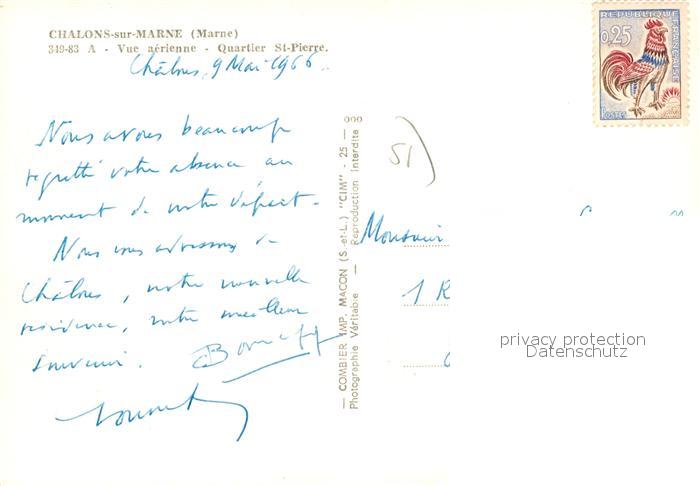 CHALONS-sur-MARNE (Marne)
349-83 A - Vue aérienne - Quartier St-Pierre.
Châlons, 9 Mai 1966.
Nous avons beaucoup
regretté votre absence au
moment de notre départ.
Nous vous adressons de
Châlons, notre nouvelle
résidence, notre meilleur
souvenir.
— COMBIER IMP. MACON (S.-et-L.) "CIM" - 25 — 000
Photographie Véritable — Reproduction Interdite
51
REPUBLIQUE FRANÇAISE
0,25
POSTES
Monsieur
1 R
privacy protection
Datenschutz